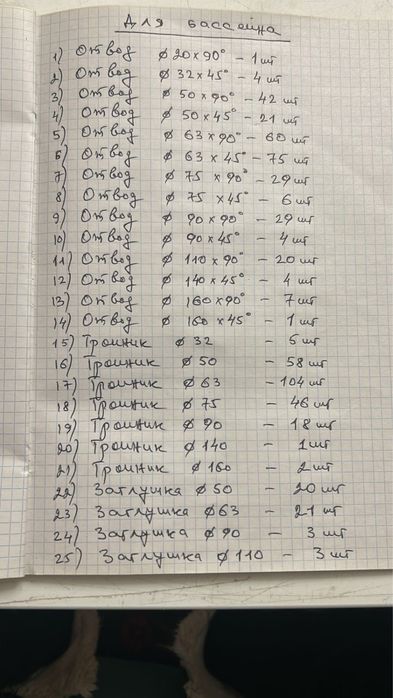 Для бассейна
1) Отвод ø 20 x 90° - 1 шт
2) Отвод ø 32 x 45° - 4 шт
3) Отвод ø 50 x 90° - 42 шт
4) Отвод ø 50 x 45° - 21 шт
5) Отвод ø 63 x 90° - 60 шт
6) Отвод ø 63 x 45° - 75 шт
7) Отвод ø 75 x 90° - 29 шт
8) Отвод ø 75 x 45° - 6 шт
9) Отвод ø 90 x 90° - 29 шт
10) Отвод ø 90 x 45° - 4 шт
11) Отвод ø 110 x 90° - 20 шт
12) Отвод ø 140 x 45° - 4 шт
13) Отвод ø 160 x 90° - 7 шт
14) Отвод ø 160 x 45° - 1 шт
15) Тройник ø 32 - 5 шт
16) Тройник ø 50 - 58 шт
17) Тройник ø 63 - 104 шт
18) Тройник ø 75 - 46 шт
19) Тройник ø 90 - 18 шт
20) Тройник ø 140 - 1 шт
21) Тройник ø 160 - 2 шт
22) Заглушка ø 50 - 20 шт
23) Заглушка ø 63 - 21 шт
24) Заглушка ø 90 - 3 шт
25) Заглушка ø 110 - 3 шт